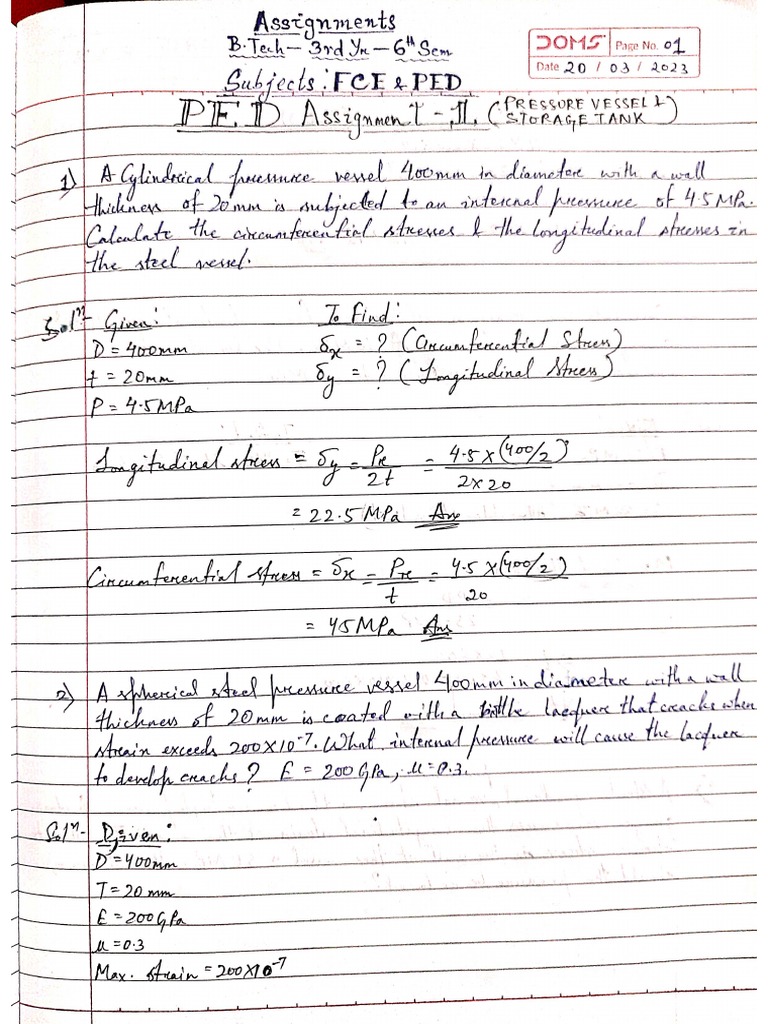 Assignments
B.Tech – 3rd Yr – 6th Sem
DOMS Page No. 01
Date 20 / 03 / 2023
Subjects: FCE & PED
PED Assignment - 1. (PRESSURE VESSEL &
STORAGE TANK)
1) A Cylinderical pressure vessel 400mm in diameter with a wall
thickness of 20mm is subjected to an internal pressure of 4.5 MPa.
Calculate the circumferential stresses & the longitudinal stresses in
the steel vessel.
Solⁿ:- Given: To find:
D = 400mm δx = ? (Circumferential Stress)
t = 20mm δy = ? (Longitudinal Stress)
P = 4.5MPa
Longitudinal stress = δy = Pr/2t = 4.5 x (400/2)/2 x 20
= 22.5 MPa Ans
Circumferential stress = δx = Pr/t = 4.5 x (400/2)/20
= 45 MPa Ans
2) A spherical steel pressure vessel 400mm in diameter with a wall
thickness of 20mm is coated with a brittle lacquer that cracks when
strain exceeds 200x10⁻⁷. What internal pressure will cause the lacquer
to develop cracks? E = 200 GPa, μ = 0.3.
Solⁿ- Given:
D = 400mm
T = 20 mm
E = 200 GPa
μ = 0.3
Max. strain = 200x10⁻⁷